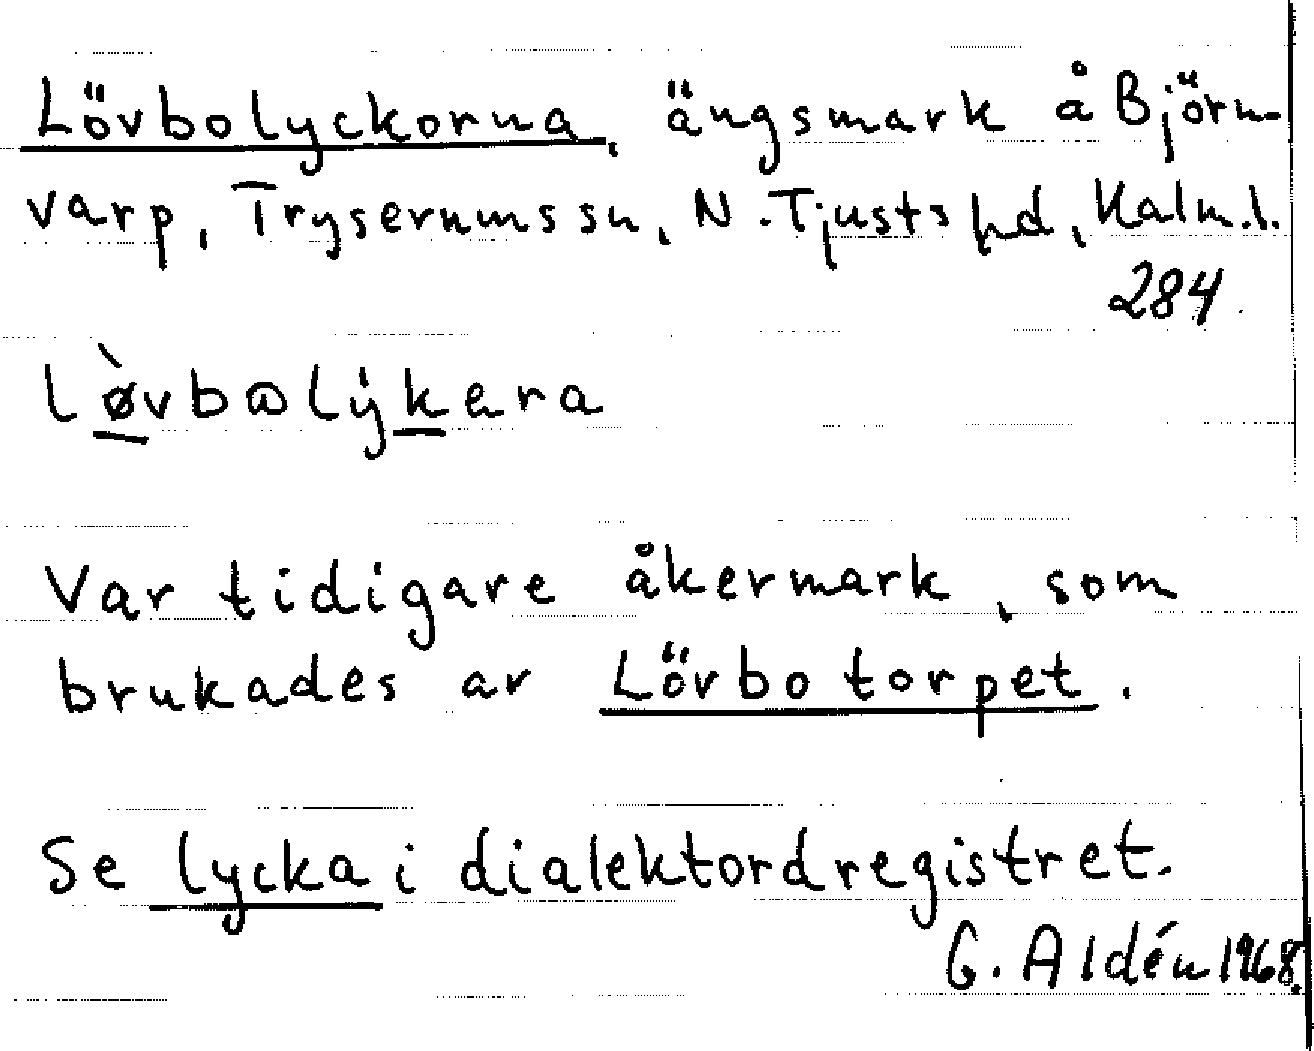 Lövbolyckorna, ängsmark å Björn-
varp, Tryserums sn, N. Tjusts hd, Kalm.l.
284
lø̀vbωlyk̲ɐra
Var tidigare åkermark, som
brukades av Lövbotorpet.
Se lycka i dialektordregistret.
G. Aldén 1968.